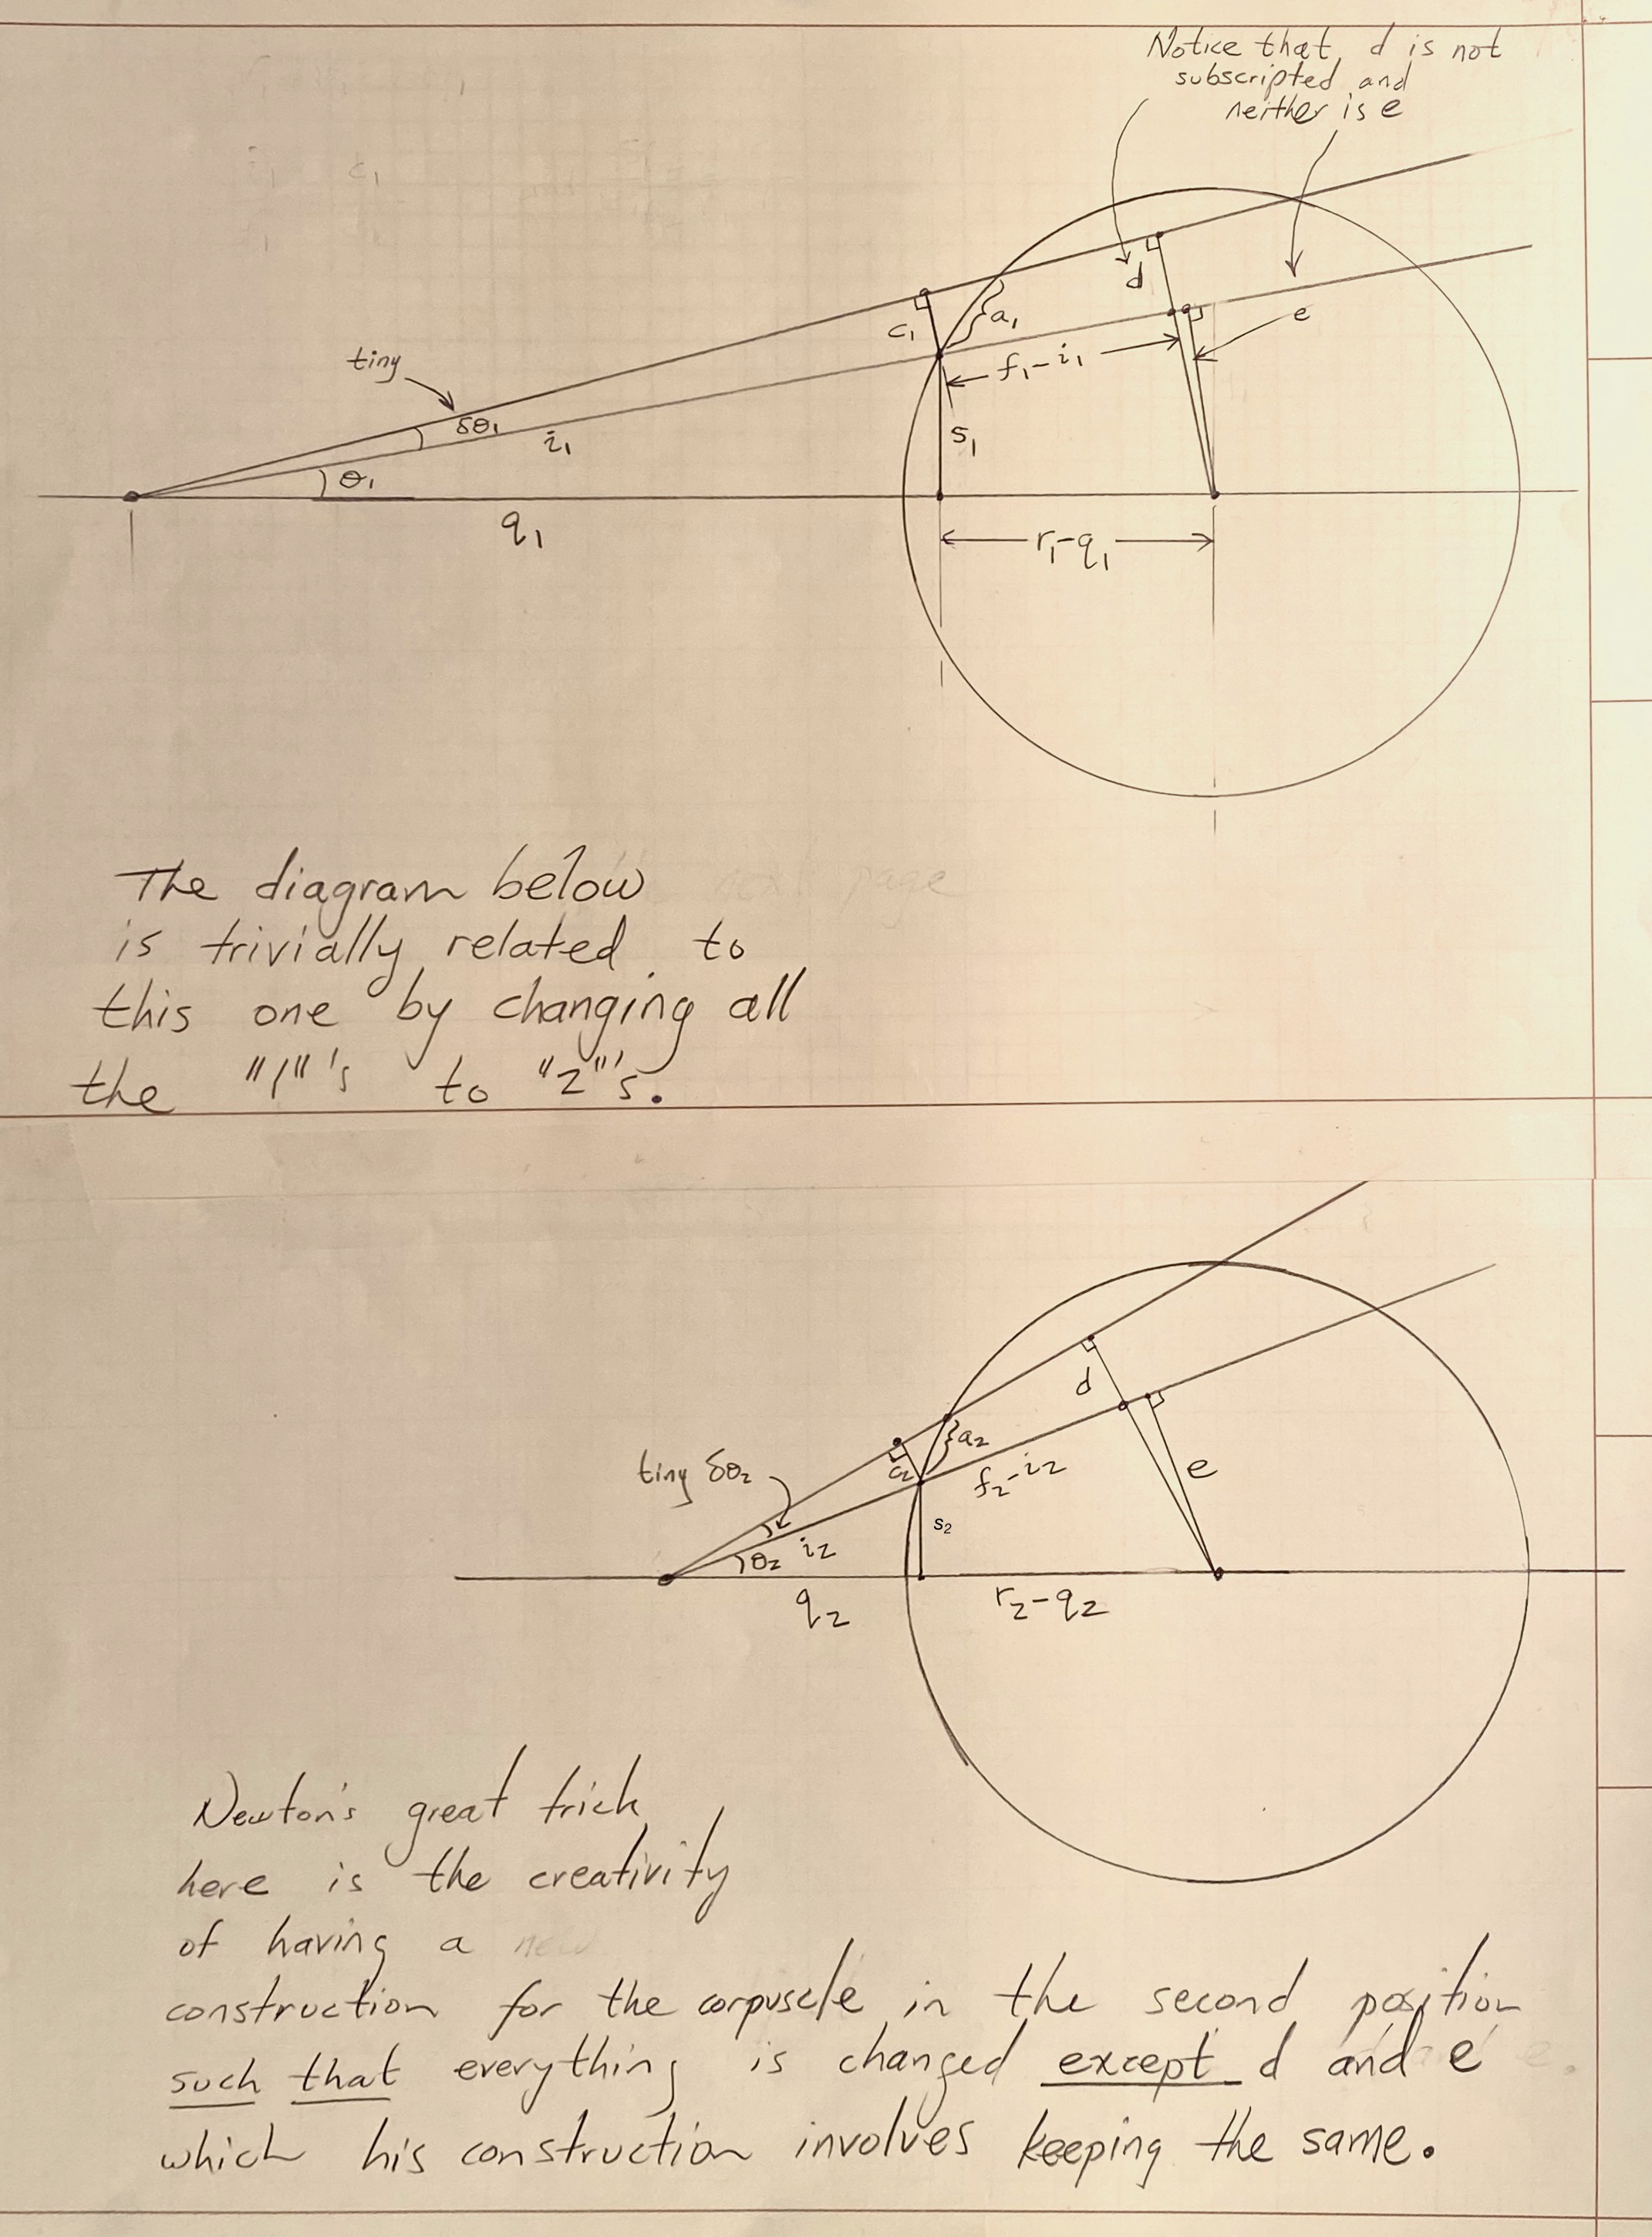 Notice that d is not
subscripted and
neither is e
d
a₁
c₁
e
f₁-i₁
tiny
δθ₁
i₁
s₁
θ₁
q₁
r₁-q₁
The diagram below
is trivially related to
this one by changing all
the "1"'s to "2"'s.
d
a₂
c₂
e
f₂-i₂
tiny δθ₂
s₂
θ₂ i₂
q₂
r₂-q₂
Newton's great trick
here is the creativity
of having a new
construction for the corpuscle in the second position
such that everything is changed except d and e
which his construction involves keeping the same.